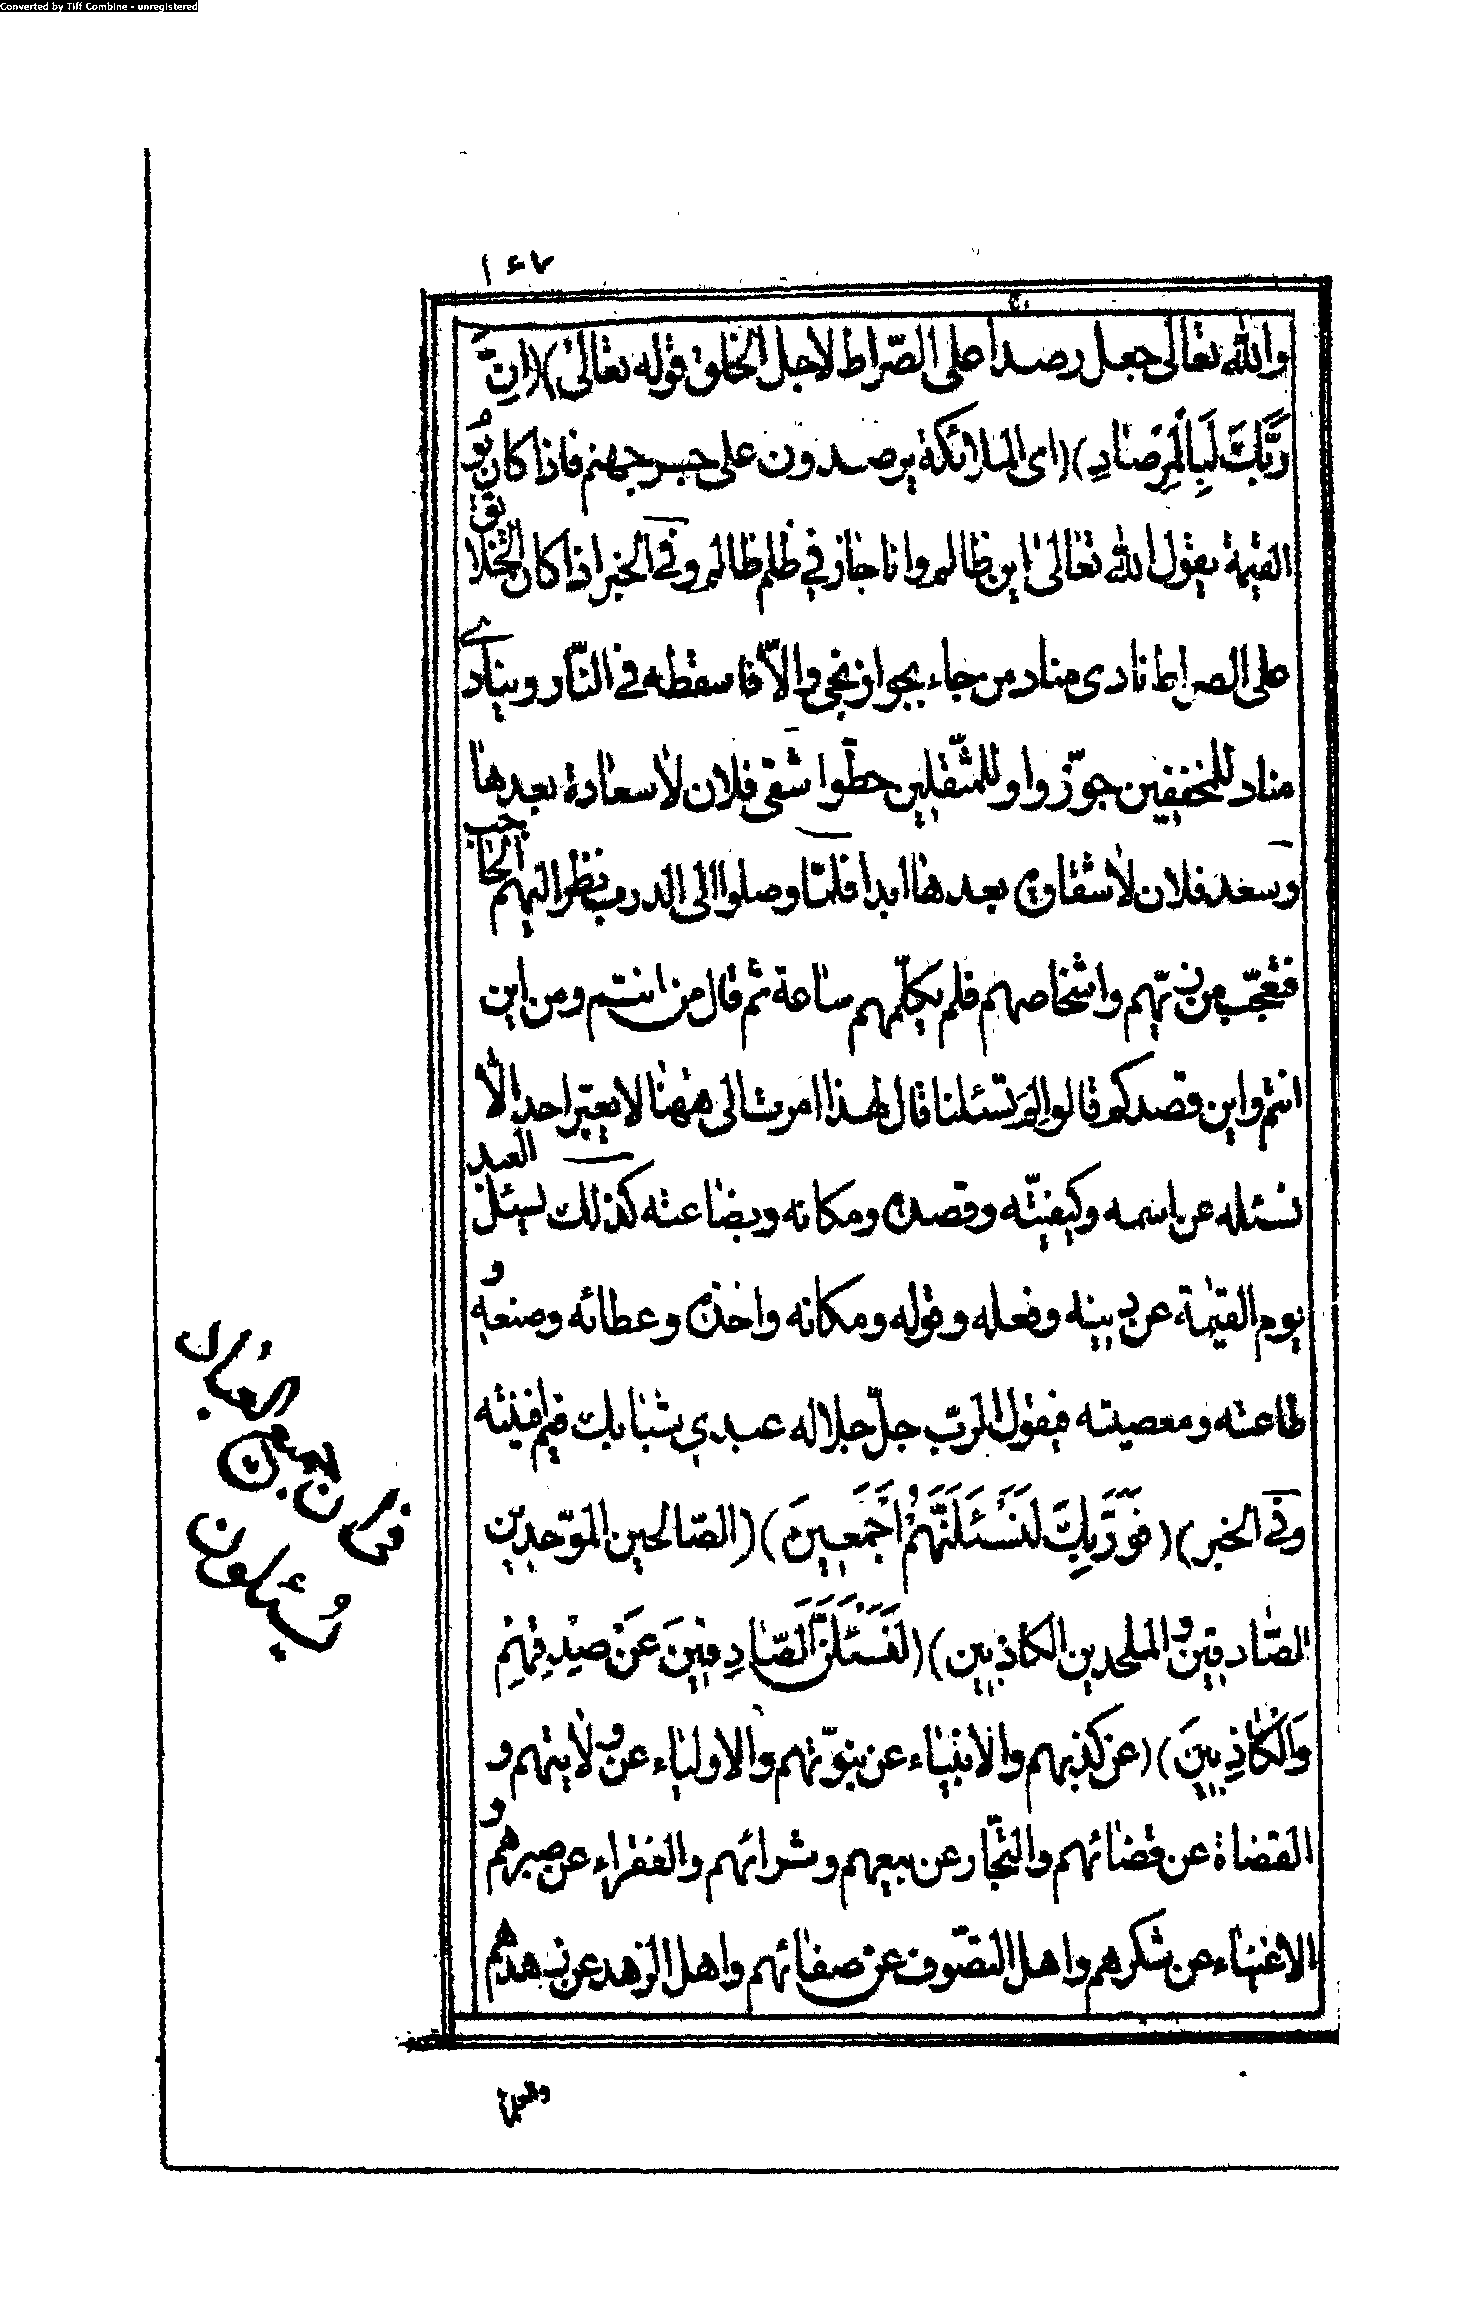 Converted by Tiff Combine - unregistered
١٤٧
والله تعالى جعل رصدا على الصّراط لاجل الخلق قوله تعالى)(اِنَّ
رَبَّكَ لَبِالْمِرْصَادِ)(اى الملائكة يرصدون على جسر جهنم فاذا كان يوم
القيمة يقول الله تعالى اين ظالم وانا جاز في ظلم ظالم وفى الخبر اذا كان الخلائق
على الصراط نادى مناد من جاء بجواز نجى والّا فاسقطه فى النّار وينادى
مناد للمخففين جوّزوا وللمثقلين حطّوا شقى فلان لا سعادة بعدها
وسعد فلان لا شقاوة بعدها ابدا فلما وصلوا الى الدرب نظر اليهم الحاجب
فتعجّب من زيّهم واشخاصهم فلم يكلّمهم ساعة ثم قال من انتم ومن اين
انتم واين قصدكم قالوا لم تسئلنا قال لهذا امرت الى ههنا لا يعبر احد الّا
نسئله عن اسمه وكيفيّته وقصده ومكانه وبضاعته كذلك يسئل العبد
يوم القيمة عن دينه وفعله وقوله ومكانه واخذه وعطائه وصنعه و
طاعته ومعصيته فيقول الربّ جلّ جلاله عبدي شبابك فيم افنيته
وفى الخبر)(فَوَرَبِّكَ لَنَسْئَلَنَّهُمْ اَجْمَعِينَ)(الصّالحين الموّحدين
الصّادقين والملحدين الكاذبين)(لَنَسْئَلَنَّ الصَّادِقِينَ عَنْ صِدْقِهِمْ
وَالْكَاذِبِينَ)(عن كذبهم والانبياء عن نبوّتهم والاولياء عن ولايتهم و
القضاة عن قضائهم والتجّار عن بيعهم وشرائهم والفقراء عن صبرهم و
الاغنياء عن شكرهم واهل التصّوف عن صفائهم واهل الزهد عن زهدهم
يُسئلون